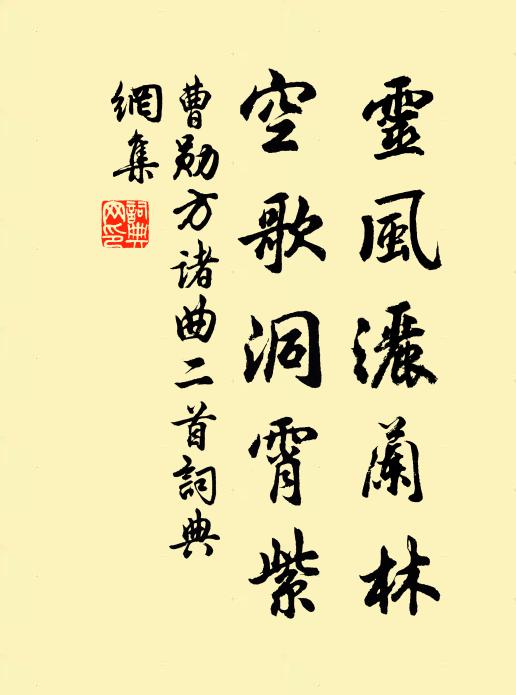 靈風灑蘭林
空歌洞霄紫
曹勛方诸曲二首詞典
網集
詞典
网印